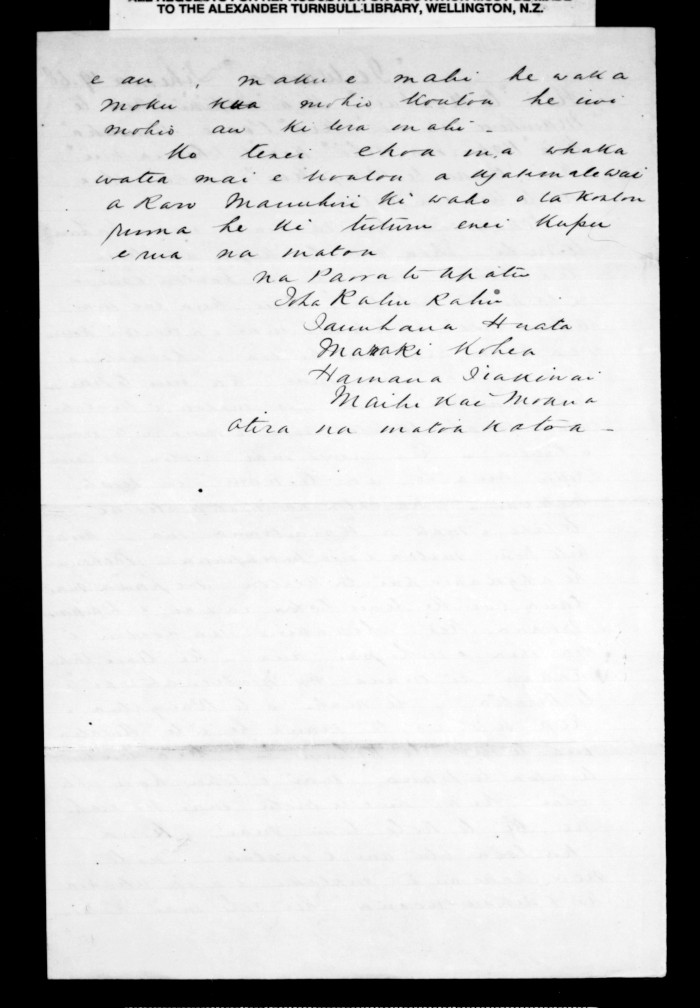 TO THE ALEXANDER TURNBULL LIBRARY, WELLINGTON, N.Z.
e au, maku e mahi he waka
moku kua mohio koutou he iwi
mohio au ki tera mahi -
Ko tenei e hoa ma whaka
watea mai e koutou a Ngatimatewai
a Raro Manuhiri ki waho o ta koutou
runa he ki tuturu enei kupu
e rua na matou
na Paora te Apatu
Ioha Kahu Kahu
Tamihana Huata
Maraki Kohea
Hamana Tiakiwai
Maihi Kai Mokua
Otira na matou katoa -